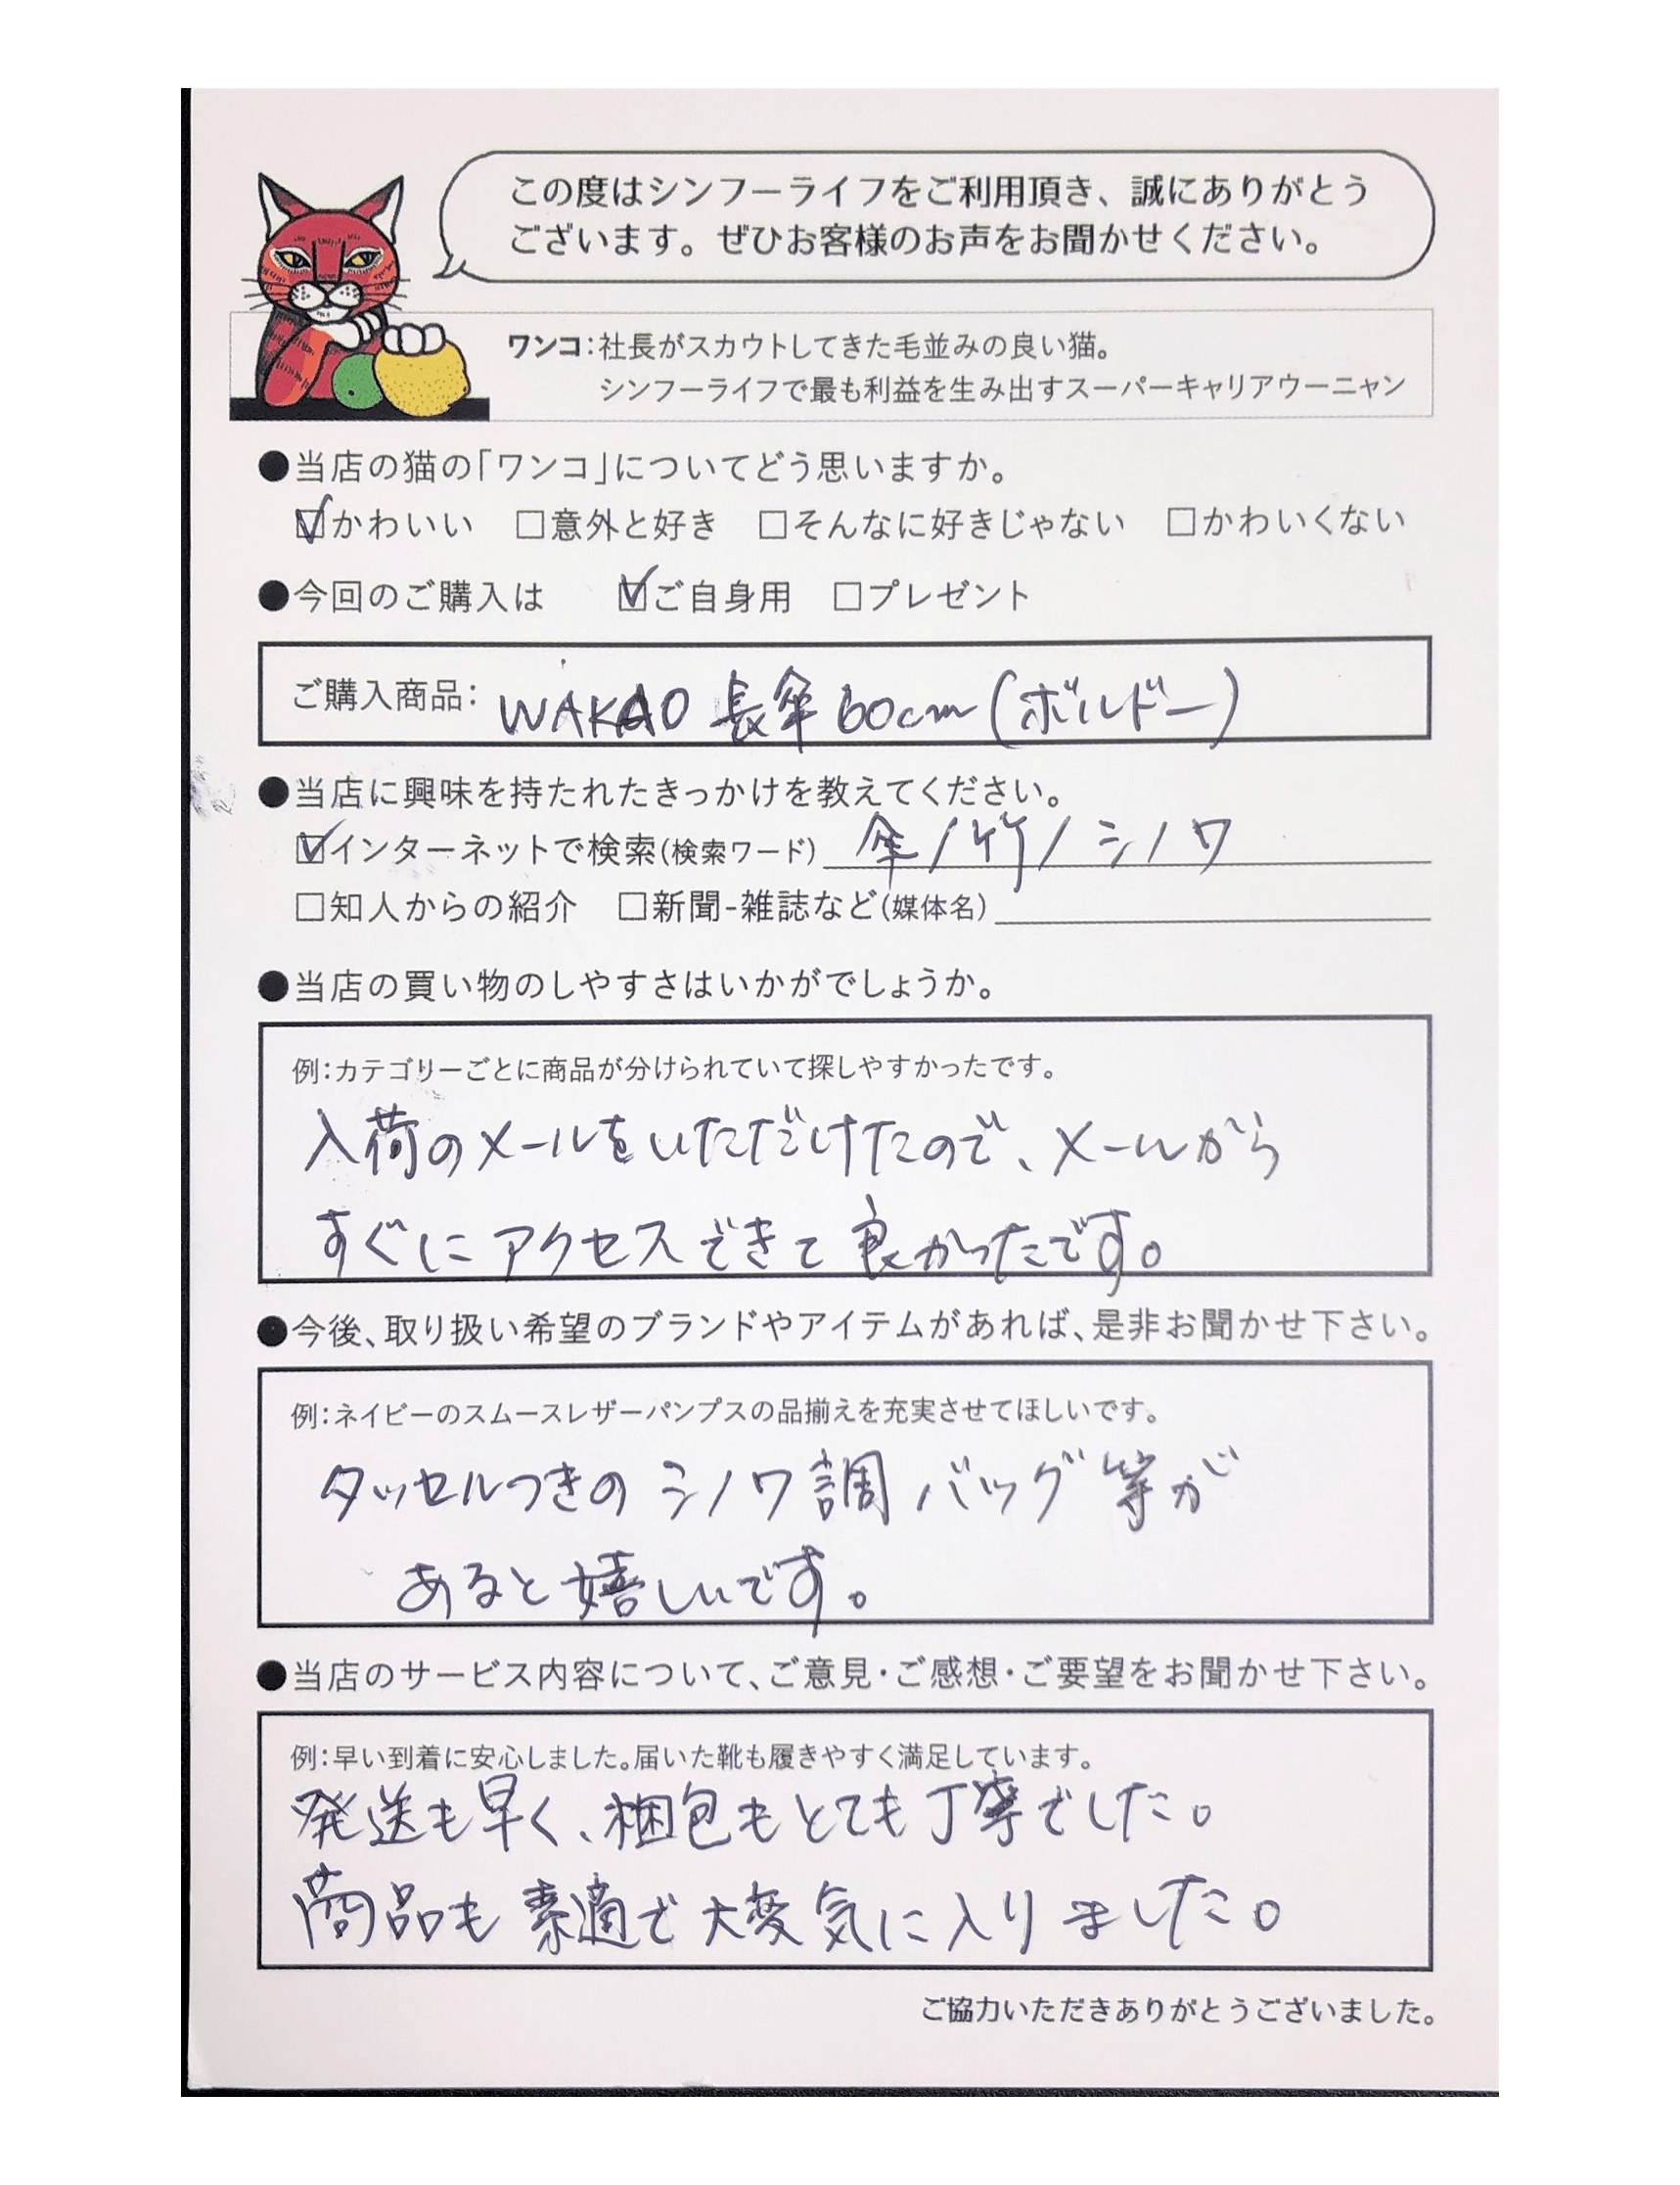 この度はシンフーライフをご利用頂き、誠にありがとう
ございます。ぜひお客様のお声をお聞かせください。
ワンコ：社長がスカウトしてきた毛並みの良い猫。
シンフーライフで最も利益を生み出すスーパーキャリアウーニャン
●当店の猫の「ワンコ」についてどう思いますか。
☑かわいい □意外と好き □そんなに好きじゃない □かわいくない
●今回のご購入は ☑ご自身用 □プレゼント
ご購入商品：WAKAO 長傘 60cm（ボルドー）
●当店に興味を持たれたきっかけを教えてください。
☑インターネットで検索(検索ワード) 傘/竹/シノワ
□知人からの紹介 □新聞-雑誌など(媒体名)
●当店の買い物のしやすさはいかがでしょうか。
例：カテゴリーごとに商品が分けられていて探しやすかったです。
入荷のメールをいただけたので、メールから
すぐにアクセスできて良かったです。
●今後、取り扱い希望のブランドやアイテムがあれば、是非お聞かせ下さい。
例：ネイビーのスムースレザーパンプスの品揃えを充実させてほしいです。
タッセルつきのシノワ調バッグ等が
あると嬉しいです。
●当店のサービス内容について、ご意見・ご感想・ご要望をお聞かせ下さい。
例：早い到着に安心しました。届いた靴も履きやすく満足しています。
発送も早く、梱包もとても丁寧でした。
商品も素適で大変気に入りました。
ご協力いただきありがとうございました。